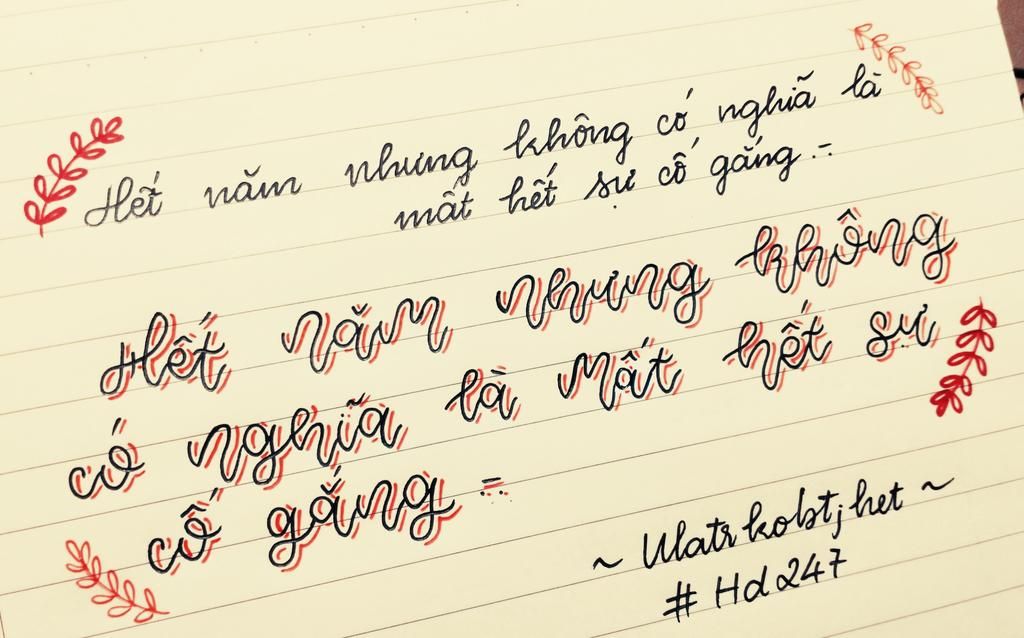 Hết năm nhưng không có nghĩa là
mất hết sự cố gắng.-
Hết năm nhưng không
có nghĩa là mất hết sự
cố gắng -
~ Ulatrkobtjhet ~
# Hd247